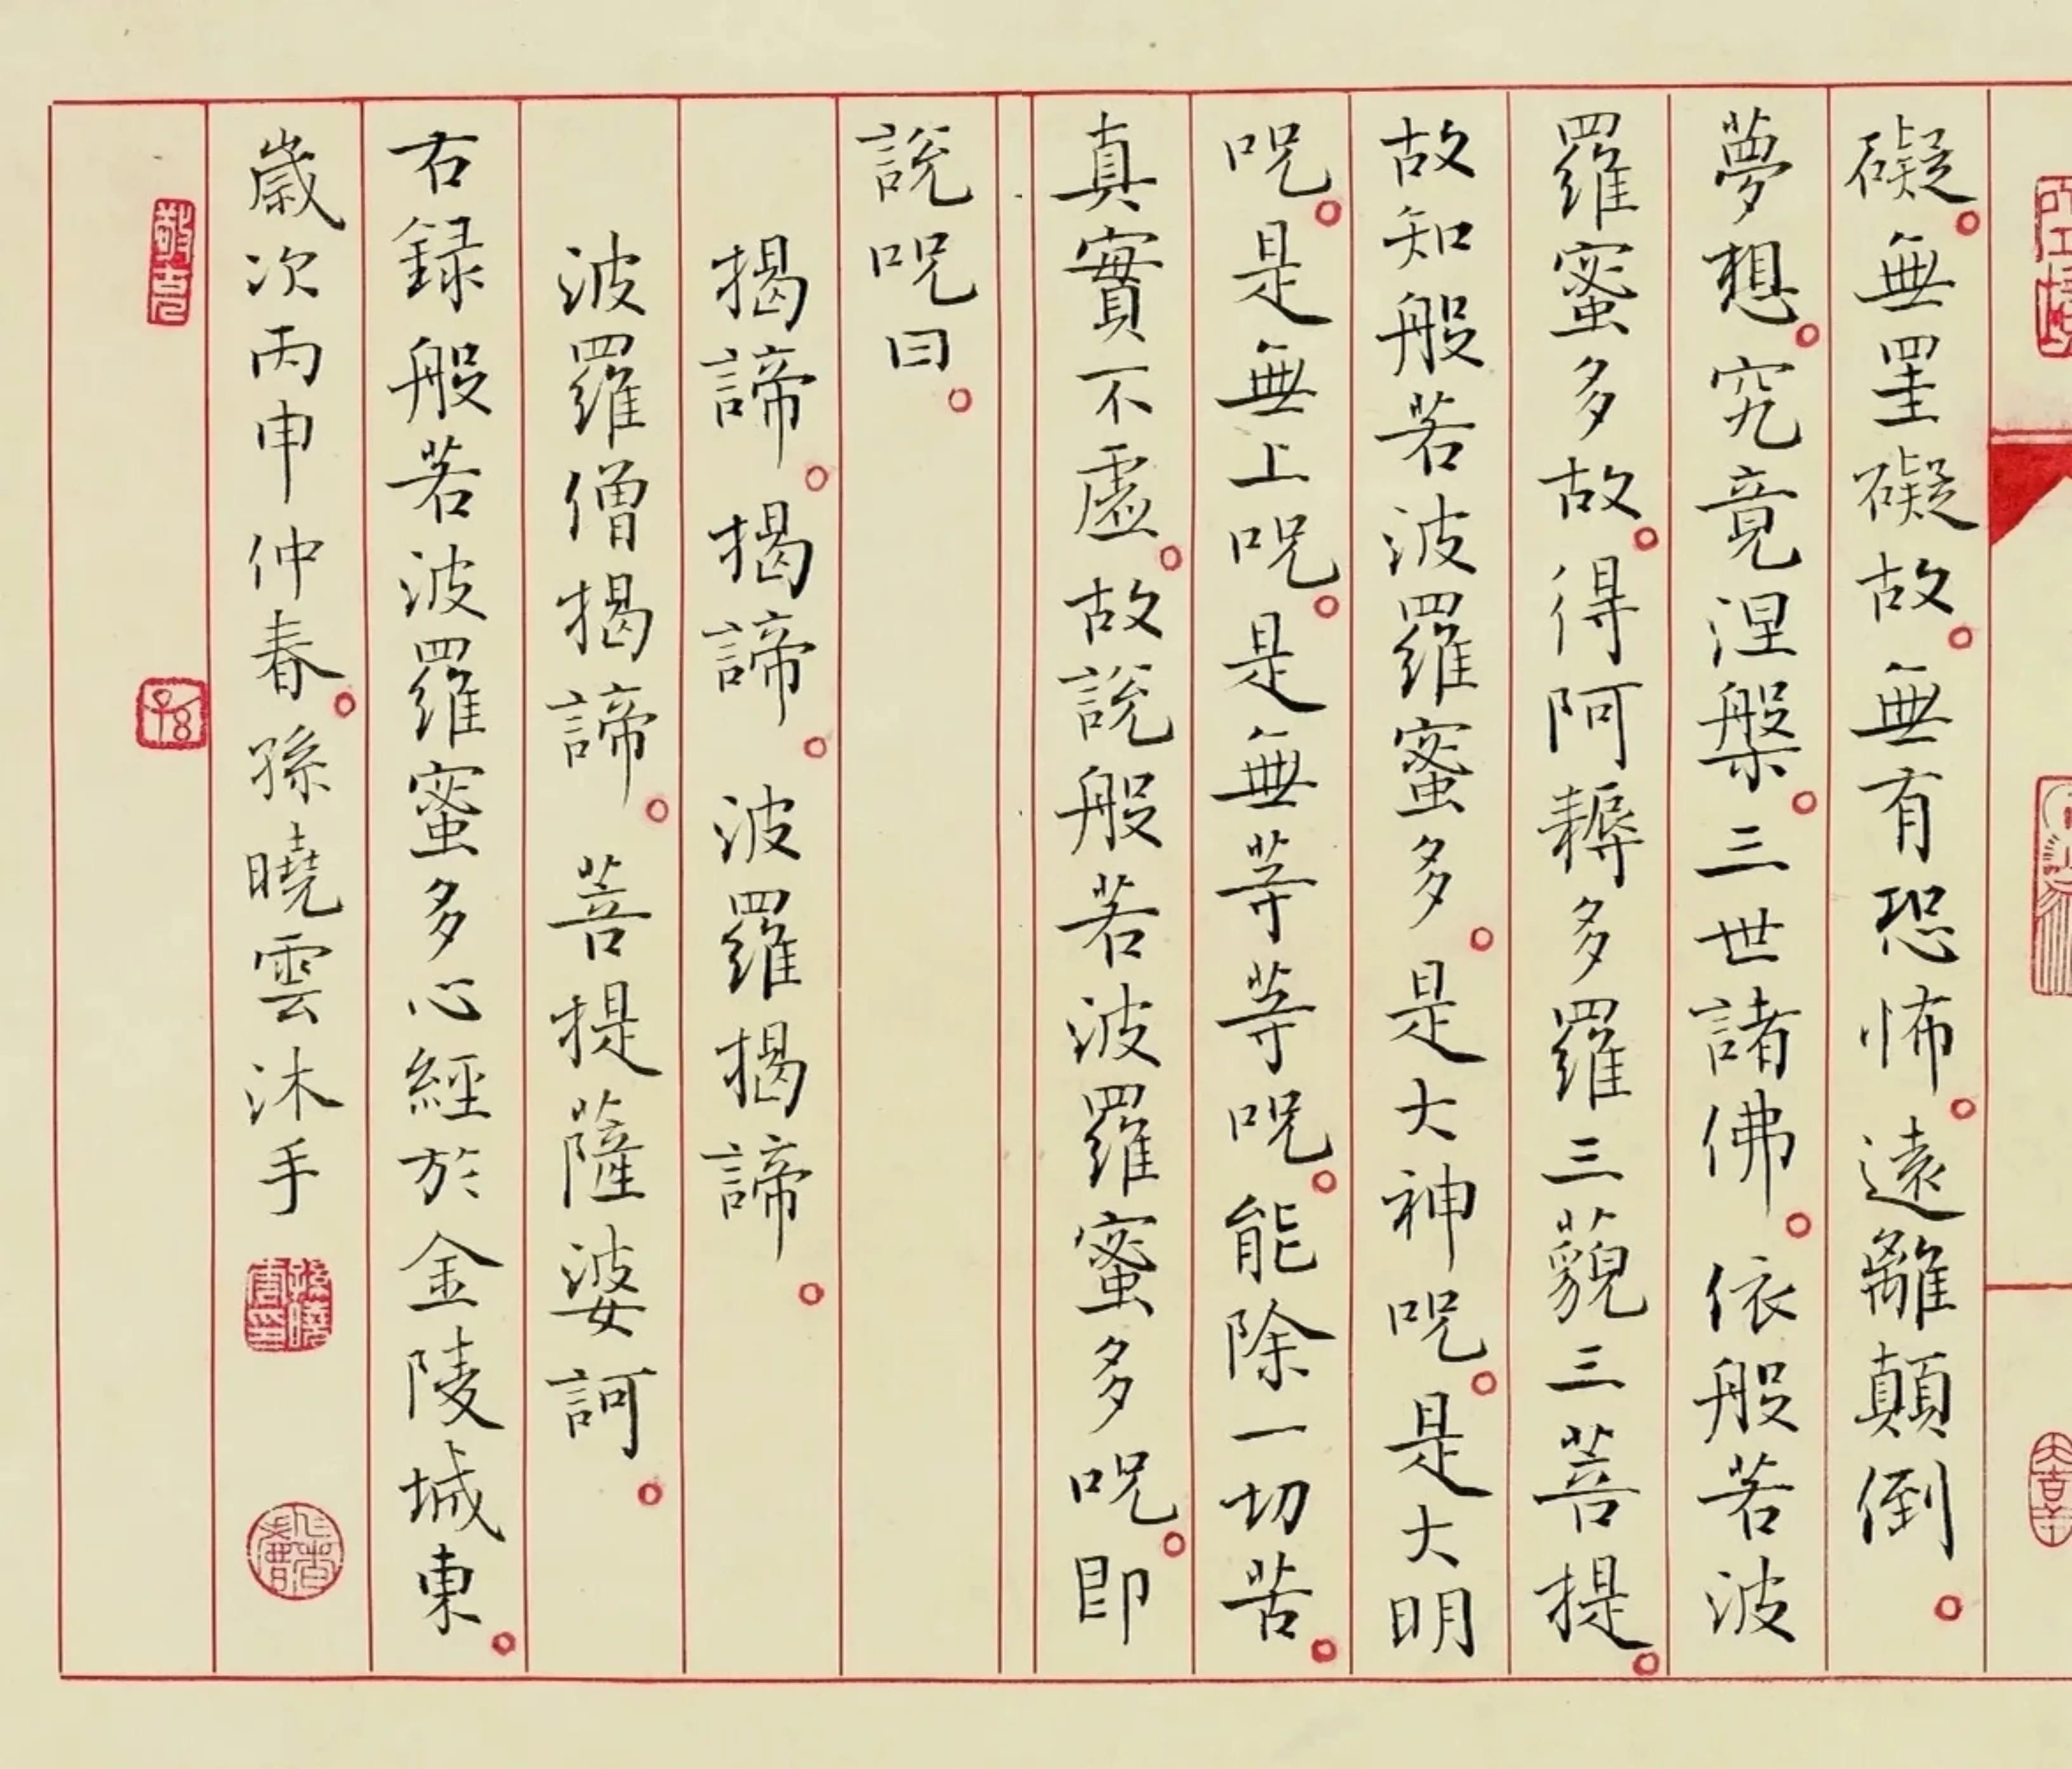 礙。無罣礙故。無有恐怖。遠離顛倒。
夢想。究竟涅槃。三世諸佛。依般若波
羅蜜多故。得阿耨多羅三藐三菩提。
故知般若波羅蜜多。是大神呪。是大明
呪。是無上呪。是無等等呪。能除一切苦。
真實不虛。故說般若波羅蜜多呪。即
說呪曰。
揭諦。揭諦。波羅揭諦。
波羅僧揭諦。菩提薩婆訶。
右録般若波羅蜜多心經於金陵城東。
歲次丙申仲春。孫曉雲沐手
孫曉雲印